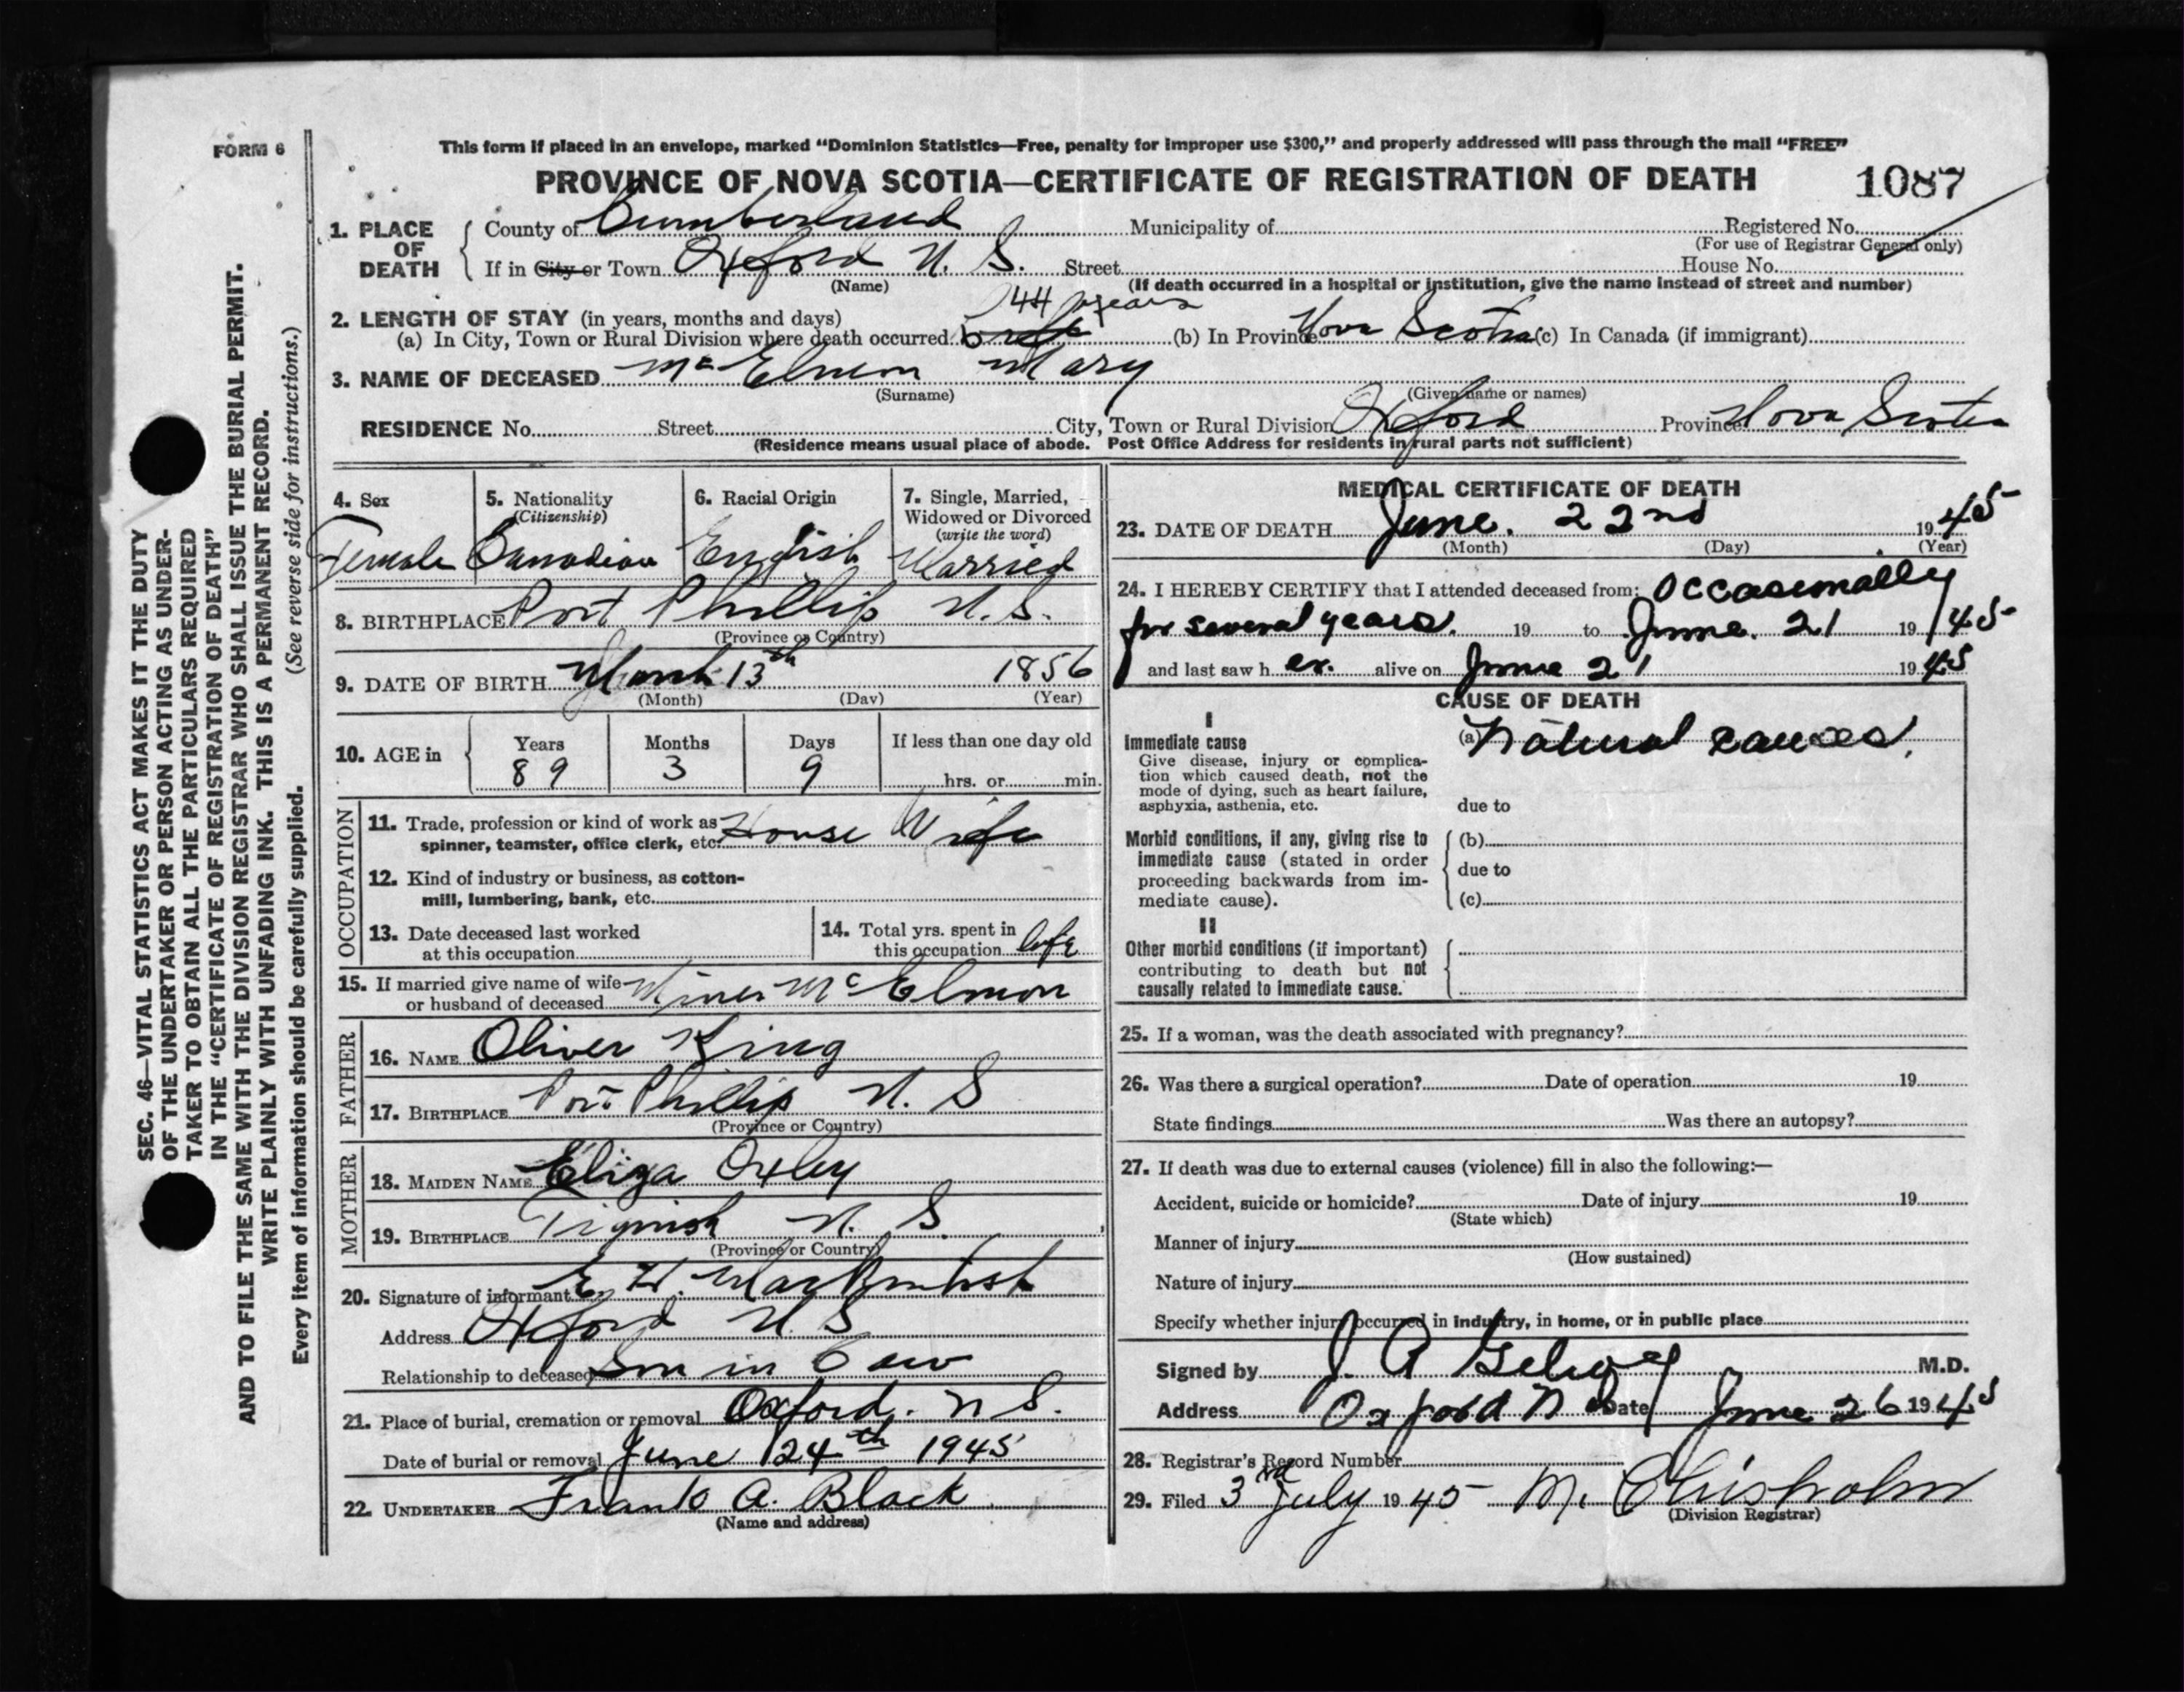 FORM 6
This form if placed in an envelope, marked "Dominion Statistics—Free, penalty for improper use $300," and properly addressed will pass through the mail "FREE"
PROVINCE OF NOVA SCOTIA—CERTIFICATE OF REGISTRATION OF DEATH 1087
1. PLACE OF DEATH
County of Cumberland Municipality of Registered No.
(For use of Registrar General only)
If in City or Town Oxford N. S. Street House No.
(Name) (If death occurred in a hospital or institution, give the name instead of street and number)
44 years
2. LENGTH OF STAY (in years, months and days)
(a) In City, Town or Rural Division where death occurred (b) In Province Nova Scotia (c) In Canada (if immigrant)
3. NAME OF DECEASED McElmon Mary
(Surname) (Given name or names)
RESIDENCE No. Street City, Town or Rural Division Oxford Province Nova Scotia
(Residence means usual place of abode. Post Office Address for residents in rural parts not sufficient)
4. Sex
Female
5. Nationality
(Citizenship)
Canadian
6. Racial Origin
English
7. Single, Married,
Widowed or Divorced
(write the word)
Married
8. BIRTHPLACE Port Phillip N.S.
(Province or Country)
9. DATE OF BIRTH March 13th 1856
(Month) (Day) (Year)
10. AGE in Years Months Days If less than one day old
89 3 9 hrs. or min.
OCCUPATION
11. Trade, profession or kind of work as
spinner, teamster, office clerk, etc. House Wife
12. Kind of industry or business, as cotton-
mill, lumbering, bank, etc.
13. Date deceased last worked
at this occupation
14. Total yrs. spent in
this occupation life
15. If married give name of wife
or husband of deceased McElmon
FATHER
16. NAME Oliver King
17. BIRTHPLACE Port Phillip N. S
(Province or Country)
MOTHER
18. MAIDEN NAME Eliza Oxley
19. BIRTHPLACE Tignish N. S.
(Province or Country)
20. Signature of informant E. H. MacKintosh
Address Oxford N. S
Relationship to deceased Son in Law
21. Place of burial, cremation or removal Oxford, N S.
Date of burial or removal June 24th 1945
22. UNDERTAKER Frank A. Black
(Name and address)
MEDICAL CERTIFICATE OF DEATH
23. DATE OF DEATH June. 22nd 1945
(Month) (Day) (Year)
24. I HEREBY CERTIFY that I attended deceased from: Occasionally
for several years. 19 to June. 21 19 45
and last saw h er. alive on June 21 1945
CAUSE OF DEATH
I
Immediate cause
Give disease, injury or complica-
tion which caused death, not the
mode of dying, such as heart failure,
asphyxia, asthenia, etc.
(a) Natural causes.
due to
Morbid conditions, if any, giving rise to
immediate cause (stated in order
proceeding backwards from im-
mediate cause).
(b)
due to
(c)
II
Other morbid conditions (if important)
contributing to death but not
causally related to immediate cause.
25. If a woman, was the death associated with pregnancy?
26. Was there a surgical operation? Date of operation 19
State findings Was there an autopsy?
27. If death was due to external causes (violence) fill in also the following:—
Accident, suicide or homicide? Date of injury 19
(State which)
Manner of injury
(How sustained)
Nature of injury
Specify whether injury occurred in industry, in home, or in public place
Signed by J. A M.D.
Address Oxford N S Date June 26 1945
28. Registrar's Record Number
29. Filed 3rd July 1945 M. Chisholm
(Division Registrar)
SEC. 46—VITAL STATISTICS ACT MAKES IT THE DUTY
OF THE UNDERTAKER OR PERSON ACTING AS UNDER-
TAKER TO OBTAIN ALL THE PARTICULARS REQUIRED
IN THE "CERTIFICATE OF REGISTRATION OF DEATH"
AND TO FILE THE SAME WITH THE DIVISION REGISTRAR WHO SHALL ISSUE THE BURIAL PERMIT.
WRITE PLAINLY WITH UNFADING INK. THIS IS A PERMANENT RECORD.
Every item of information should be carefully supplied. (See reverse side for instructions.)